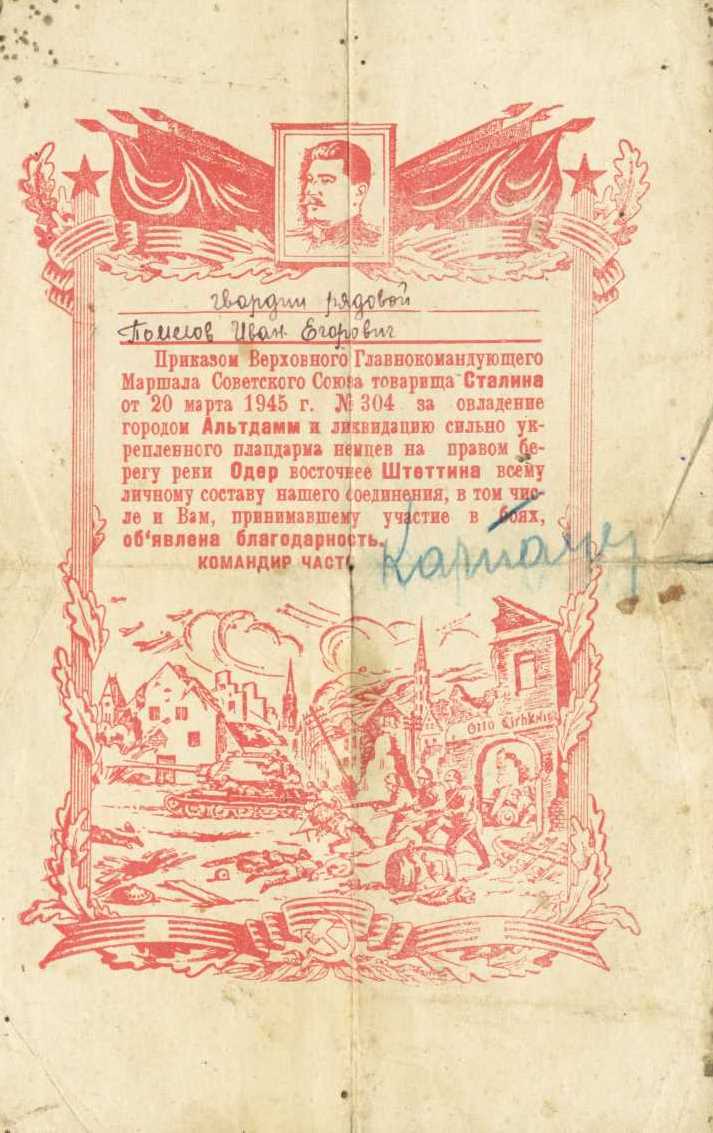 гвардии рядовой
Иван Егорович
Приказом Верховного Главнокомандующего
Маршала Советского Союза товарища Сталина
от 20 марта 1945 г. № 304 за овладение
городом Альтдамм и ликвидацию сильно ук-
репленного плацдарма немцев на правом бе-
регу реки Одер восточнее Штеттина всему
личному составу нашего соединения, в том чис-
ле и Вам, принимавшему участие в боях,
об‘явлена благодарность.
КОМАНДИР ЧАСТ
Otto